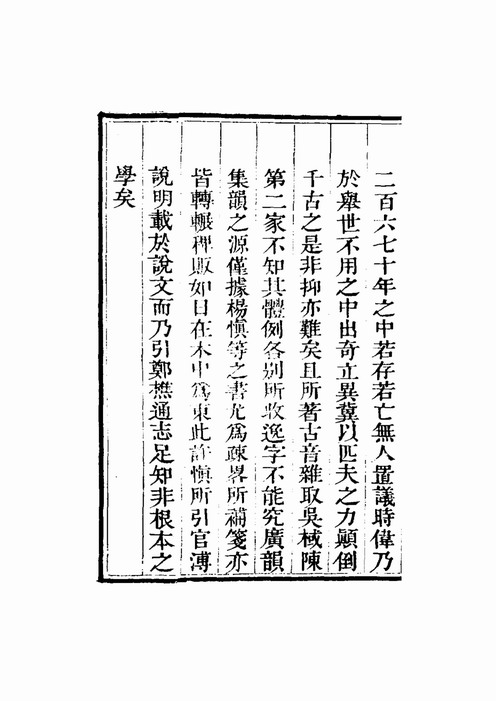 二百六七十年之中若存若亡無人置議時偉乃
於舉世不用之中出奇立異冀以匹夫之力顚倒
千古之是非抑亦難矣且所著古音雜取吳棫陳
第二家不知其體例各別所收逸字不能究廣韻
集韻之源僅據楊慎等之書尤爲疎畧所補箋亦
皆轉輾稗販如日在木中爲東此許慎所引官溥
說明載於說文而乃引鄭樵通志足知非根本之
學矣